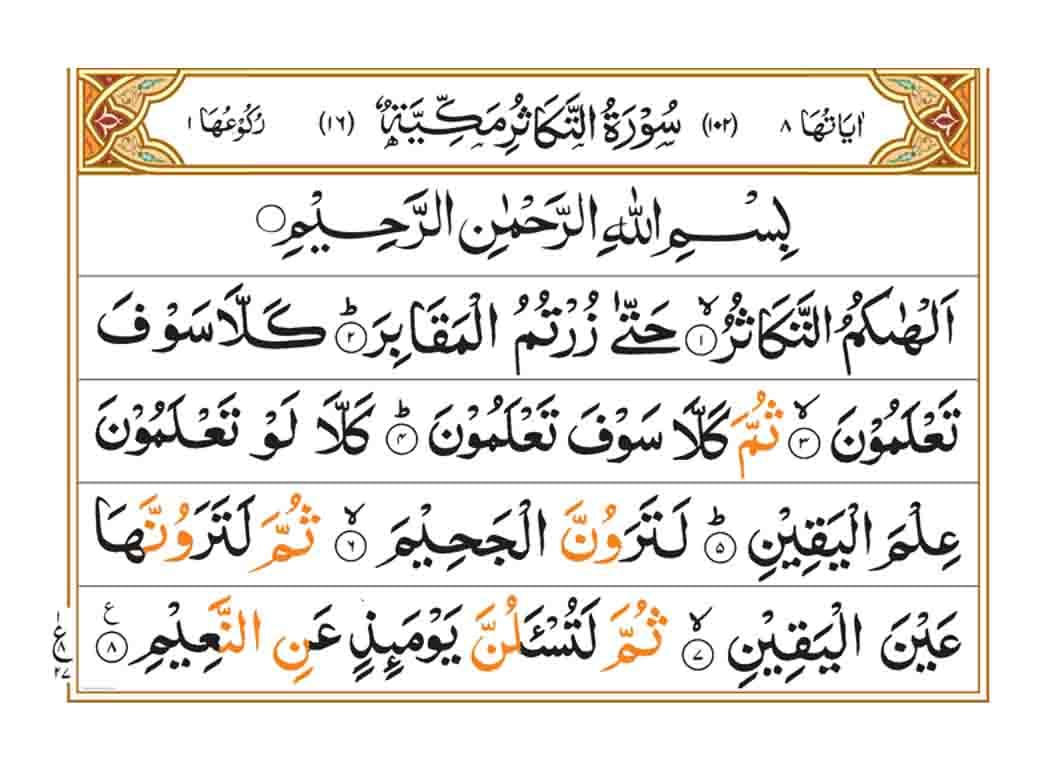 اٰيَاتُهَا ٨ (١٠٢) سُوْرَةُ التَّكَاثُرِ مَكِّيَّةٌ (١٦) رُكُوْعُهَا ١
بِسْمِ اللّٰهِ الرَّحْمٰنِ الرَّحِيْمِ ○
اَلْهٰىكُمُ التَّكَاثُرُ ۙ ١ حَتّٰى زُرْتُمُ الْمَقَابِرَ ؕ ٢ كَلَّا سَوْفَ
تَعْلَمُوْنَ ۙ ٣ ثُمَّ كَلَّا سَوْفَ تَعْلَمُوْنَ ؕ ٤ كَلَّا لَوْ تَعْلَمُوْنَ
عِلْمَ الْيَقِيْنِ ؕ ٥ لَتَرَوُنَّ الْجَحِيْمَ ۙ ٦ ثُمَّ لَتَرَوُنَّهَا
عَيْنَ الْيَقِيْنِ ۙ ٧ ثُمَّ لَتُسْـَٔلُنَّ يَوْمَئِذٍ عَنِ النَّعِيْمِ ٨ ع
ع ٨ ٢٧